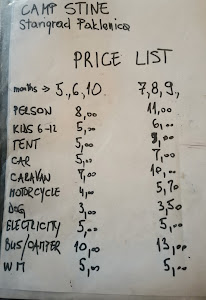 CAMP STINE
Starigrad Paklenica
PRICE LIST
months → 5.,6,10. 7,8,9.,
PERSON 8,00 11,00
KIDS 6-12 5,00 6,00
TENT 5,00 9,00
CAR 5,00 7,00
CARAVAN 7,00 10,00
MOTORCYCLE 4,00 5,70
DOG 3,00 3,50
ELECTRICITY 5,00 5,00
BUS/CAMPER 10,00 13,00
WM 5,00 5,00